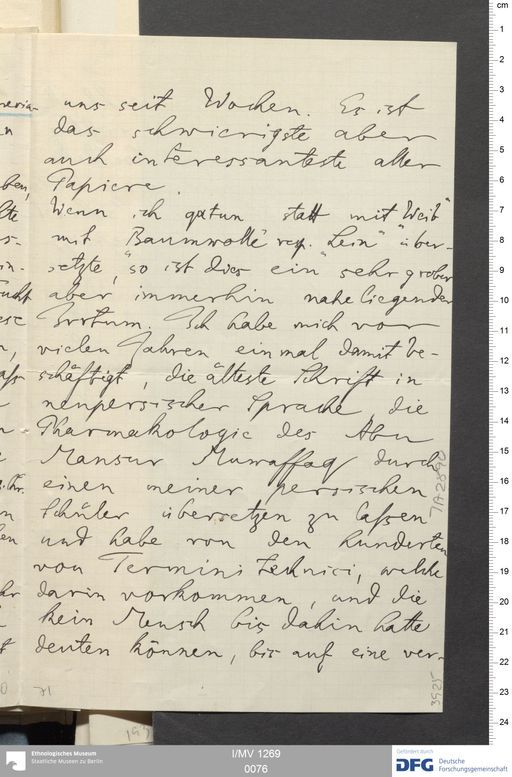 uns seit Wochen. Es ist
das schwierigste aber
auch interessanteste aller
Papiere.
Wenn ich qutun statt mit "Weib"
mit "Baumwolle" resp. "Lein" über-
setzte, so ist dies ein sehr grober
aber immerhin naheliegender
Irrtum. Ich habe mich vor
vielen Jahren einmal damit be-
schäftigt, die älteste Schrift in
neupersischer Sprache, die
Pharmakologie des Abu
Mansur Muwaffaq durch
einen meiner persischen
Schüler übersetzen zu laßen
und habe von den hunderten
von Termini technici, welche
darin vorkommen, und die
kein Mensch bis dahin hatte
deuten können, bis auf eine ver-
71
3925
cm
1
2
3
4
5
6
7
8
9
10
11
12
13
14
15
16
17
18
19
20
21
22
23
24
Ethnologisches Museum
Staatliche Museen zu Berlin
I/MV 1269
0076
Gefördert durch
DFG Deutsche
Forschungsgemeinschaft